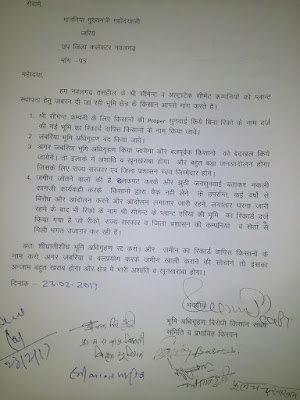 सेवामें,
माननिया मुख्यमंत्री महोदयाजी
जरिये
उप जिला कलेक्टर नवलगढ़
मांग - पत्र
महोदया,
हम नवलगढ़ तहसील के श्री सीमेन्ट व अल्ट्राटेक सीमेंट कम्पनियों को प्लान्ट
स्थापना हेतु जबरन दी जा रही भूमि क्षेत्र के किसान आपसे मांग करते है।
1. श्री सीमेन्ट कम्पनी के लिए किसानों की Proper सुनवाई किये बिना रिको के नाम दर्ज
की गई भूमि का रिकार्ड वापिस किसानों के नाम किया जावे।
2. जबरिया भूमि अधिग्रहण रद्द किया जावे।
3. अगर जबरिया भूमि अधिग्रहण किया जायेगा और बलपूर्वक किसानो को बेदखल किये
जायेगें। तो इलाके मे अशांति व खूनखराबा होगा और बहुत बड़ा जनआंदोलन होगा
जिसके लिए राज्य सरकार एवं जिला प्रशासन स्वंय जिम्मेदार होंगे।
4. जमीन जोतने वालो की है और झुठी जनसुनवाई बताकर नकली
कागजी कार्यवाही करके किसानों द्वारा चैक नही लेने के उपरान्त कई वर्षो से
विरोध और आंदोलन करने और आंदोलन लगातार जारी रहने, लगातार धरना जारी
रहने के बाद भी रिको के नाम श्री सीमेन्ट के प्लान्ट एरिया की भूमि का रिकार्ड दर्ज
किया गया है जो रिको, राज्य सरकार व जिला प्रशासन की कम्पनियों व सेठों से
मिली भगत उजागर कर रही है।
अतः शीघ्रातिशीघ्र भूमि अधिग्रहण रद्द करो। और जमीन का रिकार्ड वापिस किसानों के
नाम करो, अगर जबरिया व बलप्रयोग करके जमीन खाली कराने की सोचोगे तो इसका
अन्जाम बहुत खराब होगा और क्षेत्र में भारी अशांति व खूनखराबा होगा।
दिनांक - 23-02-2017
भूमि अधिग्रहण विरोधी किसान संघर्ष
समिति व प्रभावित किसान